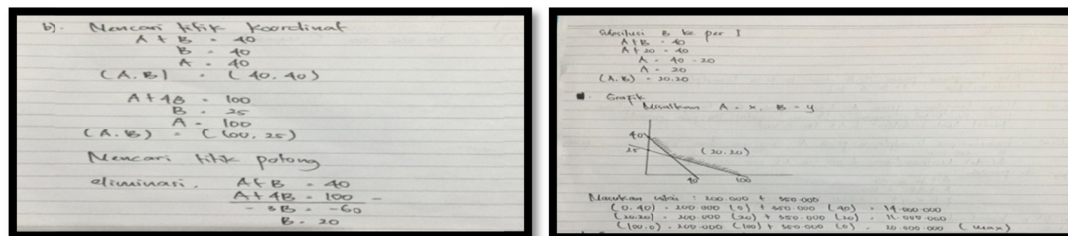 b). Mencari titik koordinat
A + B = 40
B = 40
A = 40
(A.B) = (40.40)
A + 4B = 100
B = 25
A = 100
(A.B) = (100.25)
Mencari titik potong
eliminasi. A + B = 40
A + 4B = 100 -
- 3B = -60
B = 20
Substitusi B ke per I
A + B = 40
A + 20 = 40
A = 40 - 20
A = 20
(A.B) = 20.20
Grafik
Misalkan A = x. B = y
40
25
(20.20)
40 100
Masukan : 200.000 + 350.000
(0.40) = 200.000 (0) + 350.000 (40) = 14.000.000
(20.20) = 200.000 (20) + 350.000 (20) = 11.000.000
(100.0) = 200.000 (100) + 350.000 (0) = 20.000.000 (max)